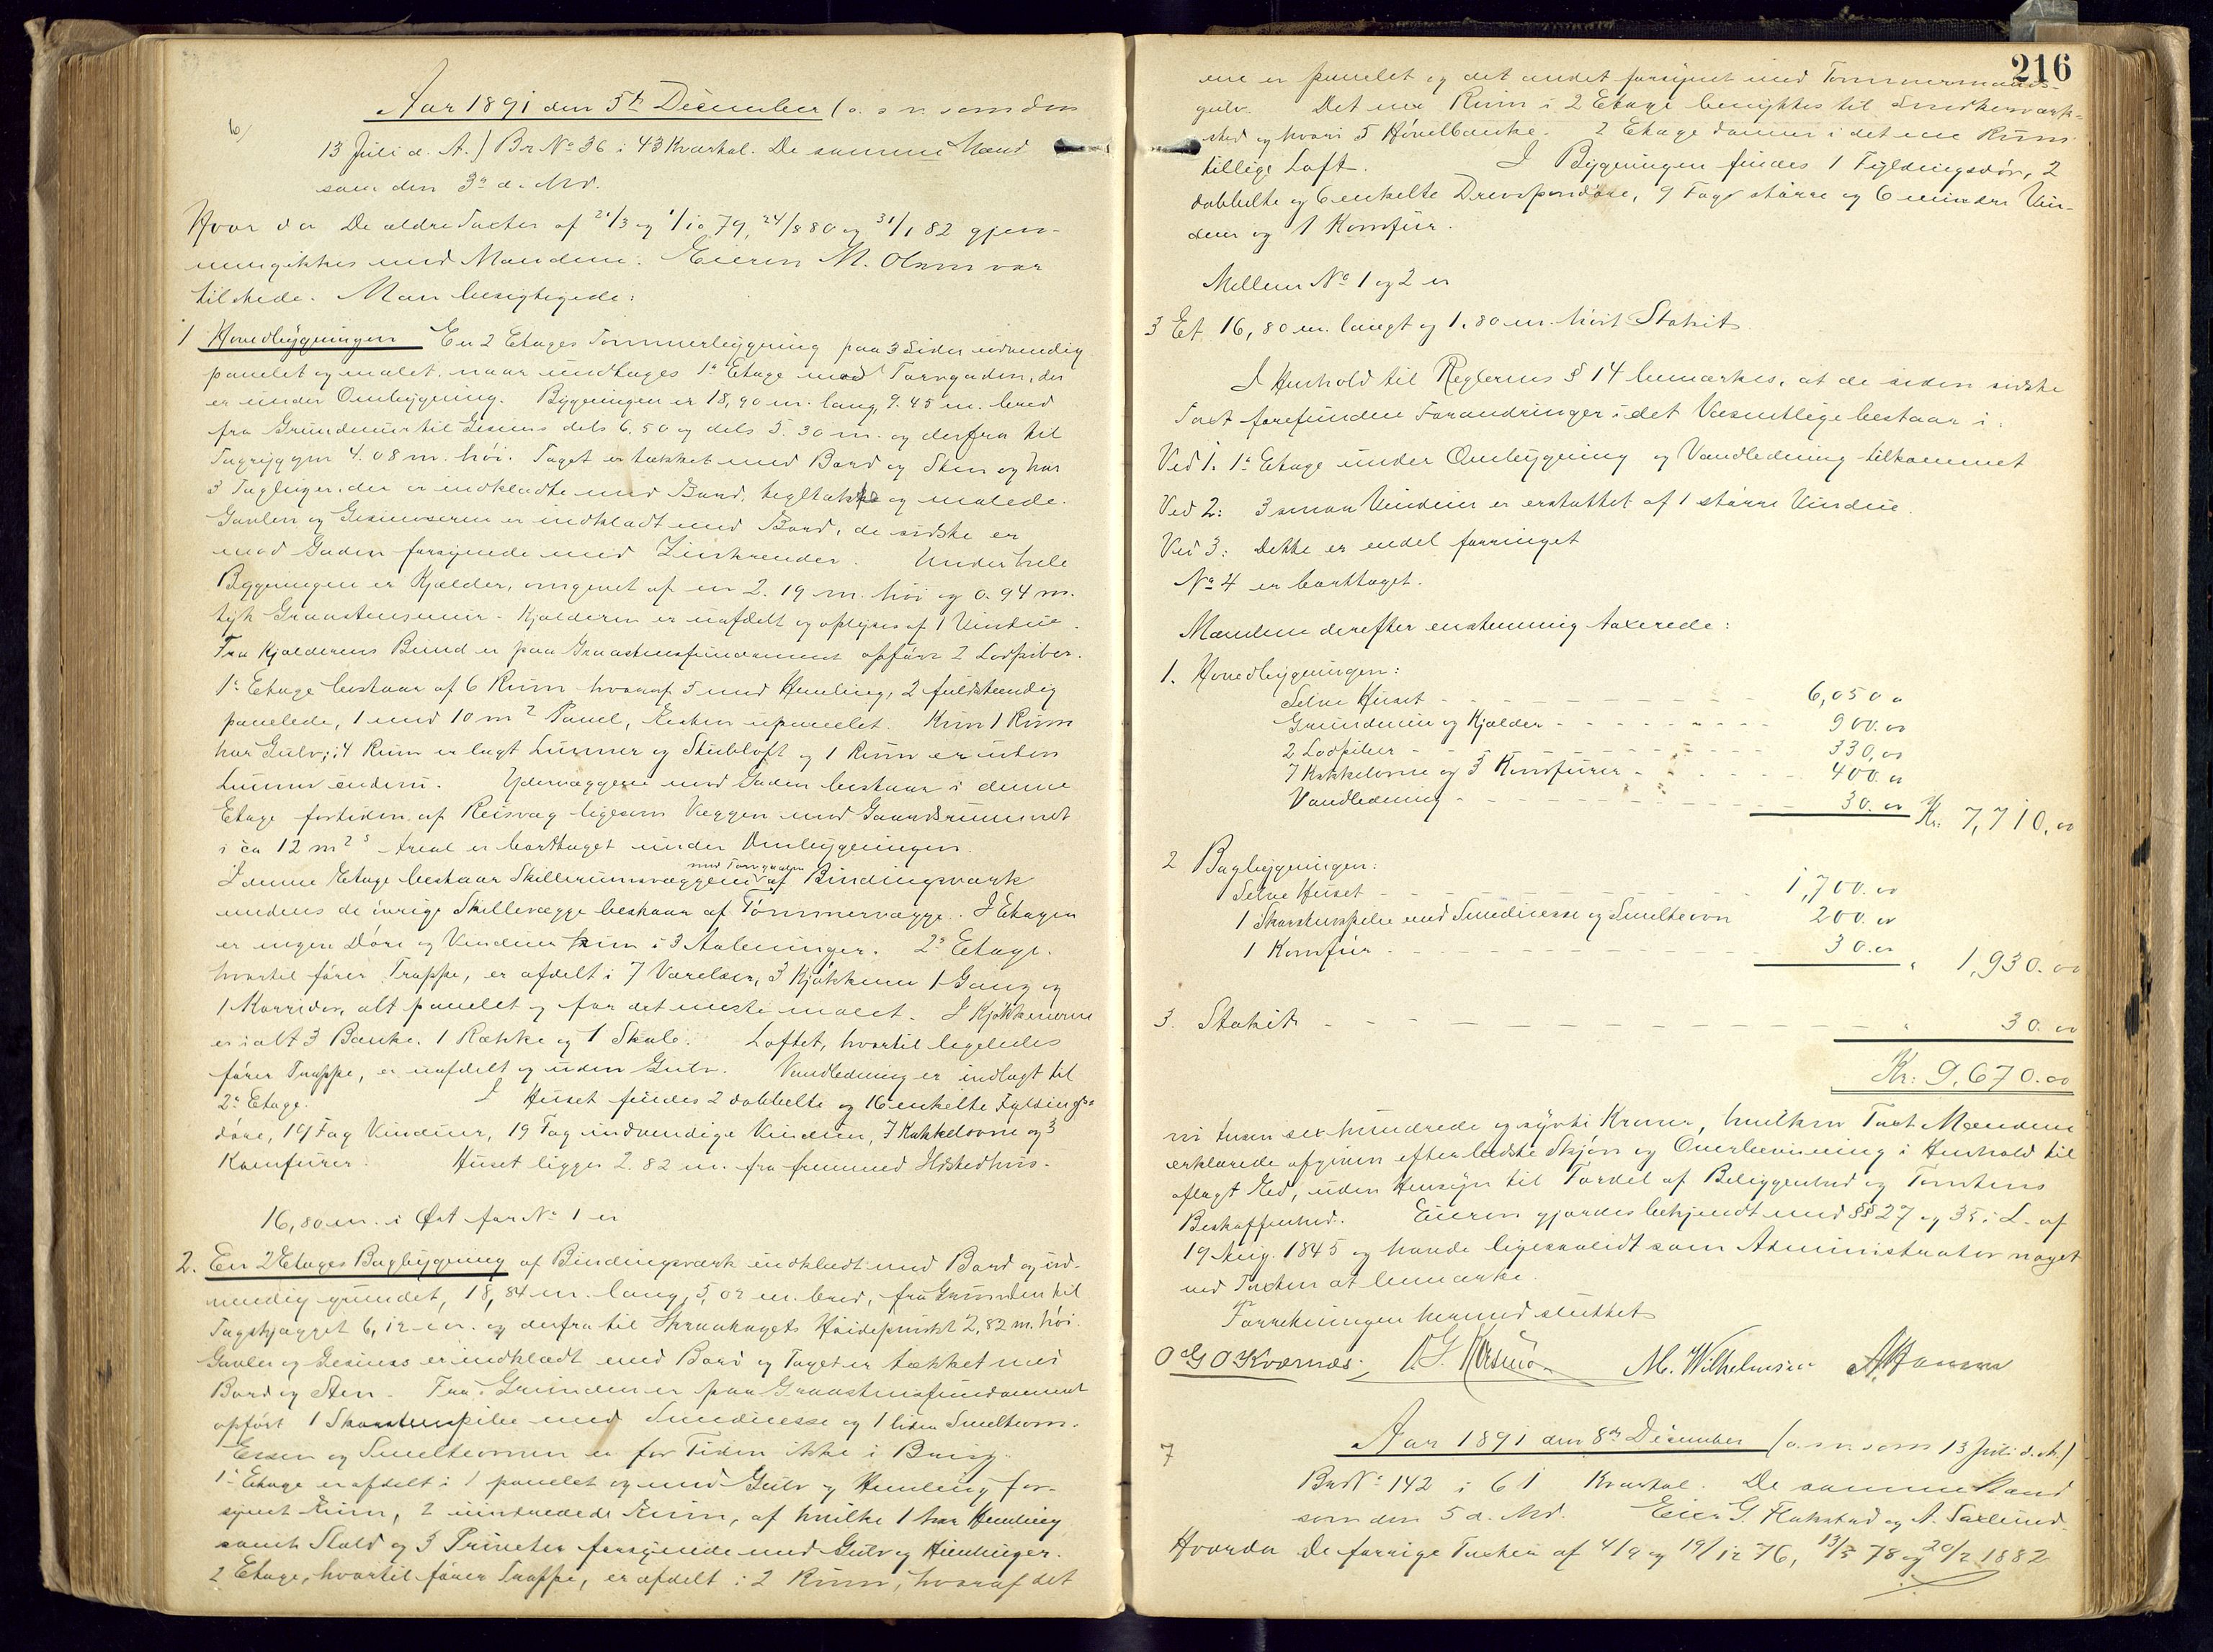 6/
Aar 1891 den 5te December (o. s. v. som den
13 Juli d. A.) Br No 36 i 43 Kvartal. De samme Mænd
som den 3e d. Md.
Hvor da De ældre Taxter af 21/3 og 1/10 79, 24/8 80 og 31/1 82 gjen-
nemgikkes med Mændene. Eieren M. Olsen var
tilstede. Man besigtigede:
1 Hovedbygningen En 2 Etages Tømmerbygning paa 3 Sider udvendig
panelet og malet, naar undtages 1e Etage mod Torvgaden, der
er under Ombygning. Bygningen er 18,90 m. lang, 9.45 m. bred
fra Grundmur til Gesims dels 6.50 og dels 5.30 m. og derfra til
Tagryggen 4.08 m. høi. Taget er tækket med Bord og Sten og har
3 Tagluger, der er indklædte med Bord, tegltakte og malede.
Gavlen og Gesimserne er indklædt med Bord, de sidste er
mod Gaden forsynede med Zinkrender. Under hele
Bygningen er Kjælder, omgivet af en 2.19 m. høi og 0.94 m.
tyk Graastensmur. Kjælderen er uafdelt og oplyses af 1 Vindue.
Fra Kjælderens Bund er paa Graastensfundament opført 2 Lodpiber.
1e Etage bestaar af 6 Rum hvoraf 5 med Himling, 2 fuldstændig
panelede, 1 med 10 m2 Panel, Resten upanelet. Kun 1 Rum
har Gulv; i 4 Rum er lagt Lunner og Stubloft og 1 Rum er uden
Lunner endnu. Ydervæggene mod Gaden bestaar i denne
Etage fortiden af Reisværk ligesom Væggen mod Gaardsrummet
i ca 12 m2s Areal er borttaget under Ombygningen.
I denne Etage bestaar Skillerumsvæggene mod Torvgaden af Bindingsværk
medens de øvrige Skillevægge bestaar af Tømmervægge. I Etagen
er ingen Døre og Vinduer kun i 3 Aabninger. 2e Etage.
hvortil fører Trappe, er afdelt i 7 Værelser, 3 Kjøkkener 1 Gang og
1 Korridor, alt panelet og for det meste malet. I Kjøkkenerne
er ialt 3 Bænke, 1 Række og 1 Skab. Loftet, hvortil ligeledes
fører Trappe, er uafdelt og uden Gulv. Vandledning er indlagt til
2e Etage. I Huset findes 2 dobbelte og 16 enkelte Fyldings-
døre, 19 Fag Vinduer, 19 Fag indvendige Vinduer, 7 Kakkelovne og 3
Komfurer. Huset ligger 2.82 m. fra fremmed Ildstedhus.
16,80 m. i Øst for No 1 er
2. En 2 Etages Bagbygning af Bindingsværk indklædt med Bord og ud-
vendig grundet, 18,84 m. lang, 5,02 m. bred, fra Grunden til
Tagskjægget 6,12 m. og derfra til Skraatagets Høidepunkt 2,82 m. høi.
Gavler og Gesims er indklædt med Bord og Taget er tækket med
Bord og Sten. Fra Grunden er paa Graastensfundament
opført 1 Skorstenspibe med Smedieesse og 1 liden Smelteovn.
Essen og Smelteovnen er for Tiden ikke i Brug.
1e Etage er afdelt i 1 panelet og med Gulv og Himling for-
synet Rum, 2 uindredede Rum, af hvilke 1 har Himling
samt Stald og 3 Priveter forsynede med Gulv og Himlinger.
2 Etage, hvortil fører Trappe, er afdelt i 2 Rum, hvoraf det
216
ene er panelet og det andet forsynet med Tømmermands-
gulv. Det ene Rum i 2 Etage benyttes til Snedkerværk-
sted og hvori 5 Høvelbænke. 2 Etage danner i det ene Rum
tillige Loft. I Bygningen findes 1 Fyldingsdør, 2
dobbelte og 6 enkelte Døre, 9 Fag større og 6 mindre Vin-
duer og 1 Komfur.
Mellem No 1 og 2 er
3 Et 16,80 m. langt og 1.80 m. høit Stakit
I Henhold til Reglernes § 14 bemærkes, at de siden sidste
Taxt forefundne Forandringer i det Væsentlige bestaar i:
Ved 1. 1e Etage under Ombygning og Vandledning tilkommet
Ved 2: 3 smaa Vinduer er erstattet af 1 større Vindue.
Ved 3: Dette er endel forringet
No 4 er borttaget.
Mændene derefter enstemmig taxerede:
1. Hovedbygningen:
Selve Huset - - - 6,050 "
Grundmur og Kjælder - - - 900.00
2 Lodpiber - - - 330,00
7 Kakkelovne og 3 Komfurer - - - 400.00
Vandledning - - - 30.00 Kr. 7,710.00
2 Bagbygningen:
Selve Huset - - - 1,700.00
1 Skorstenspibe med Smedieesse og Smelteovn 200.00
1 Komfur - - - 30.00 " 1,930.00
3. Stakit - - - " 30.00
Kr: 9,670.00
ni tusen sex hundrede og sytti Kroner, hvilken Taxt Mændene
erklærede afgiven efter bedste Skjøn og Overbevisning i Henhold til
aflagt Ed, uden Hensyn til Fordel af Beliggenhed og Tomtens
Beskaffenhed. Eieren gjordes bekjendt med §§ 27 og 35 i L. af
19 Aug. 1845 og havde ligesaalidt som Administrator noget
ved Taxten at bemærke.
Forretningen hermed sluttet
O G O Kværnes. M. Wilhelmsen A. Hansen
7
Aar 1891 den 8de December (o. s. v. som 13 Juli d. A.)
Br No 142 i 61 Kvartal. De samme Mænd
som den 5 d. Md. Eier G. Flakstad og A. Saxlund.
Hvorda De forrige Taxter af 4/9 og 19/12 76, 13/5 78 og 20/2 1882